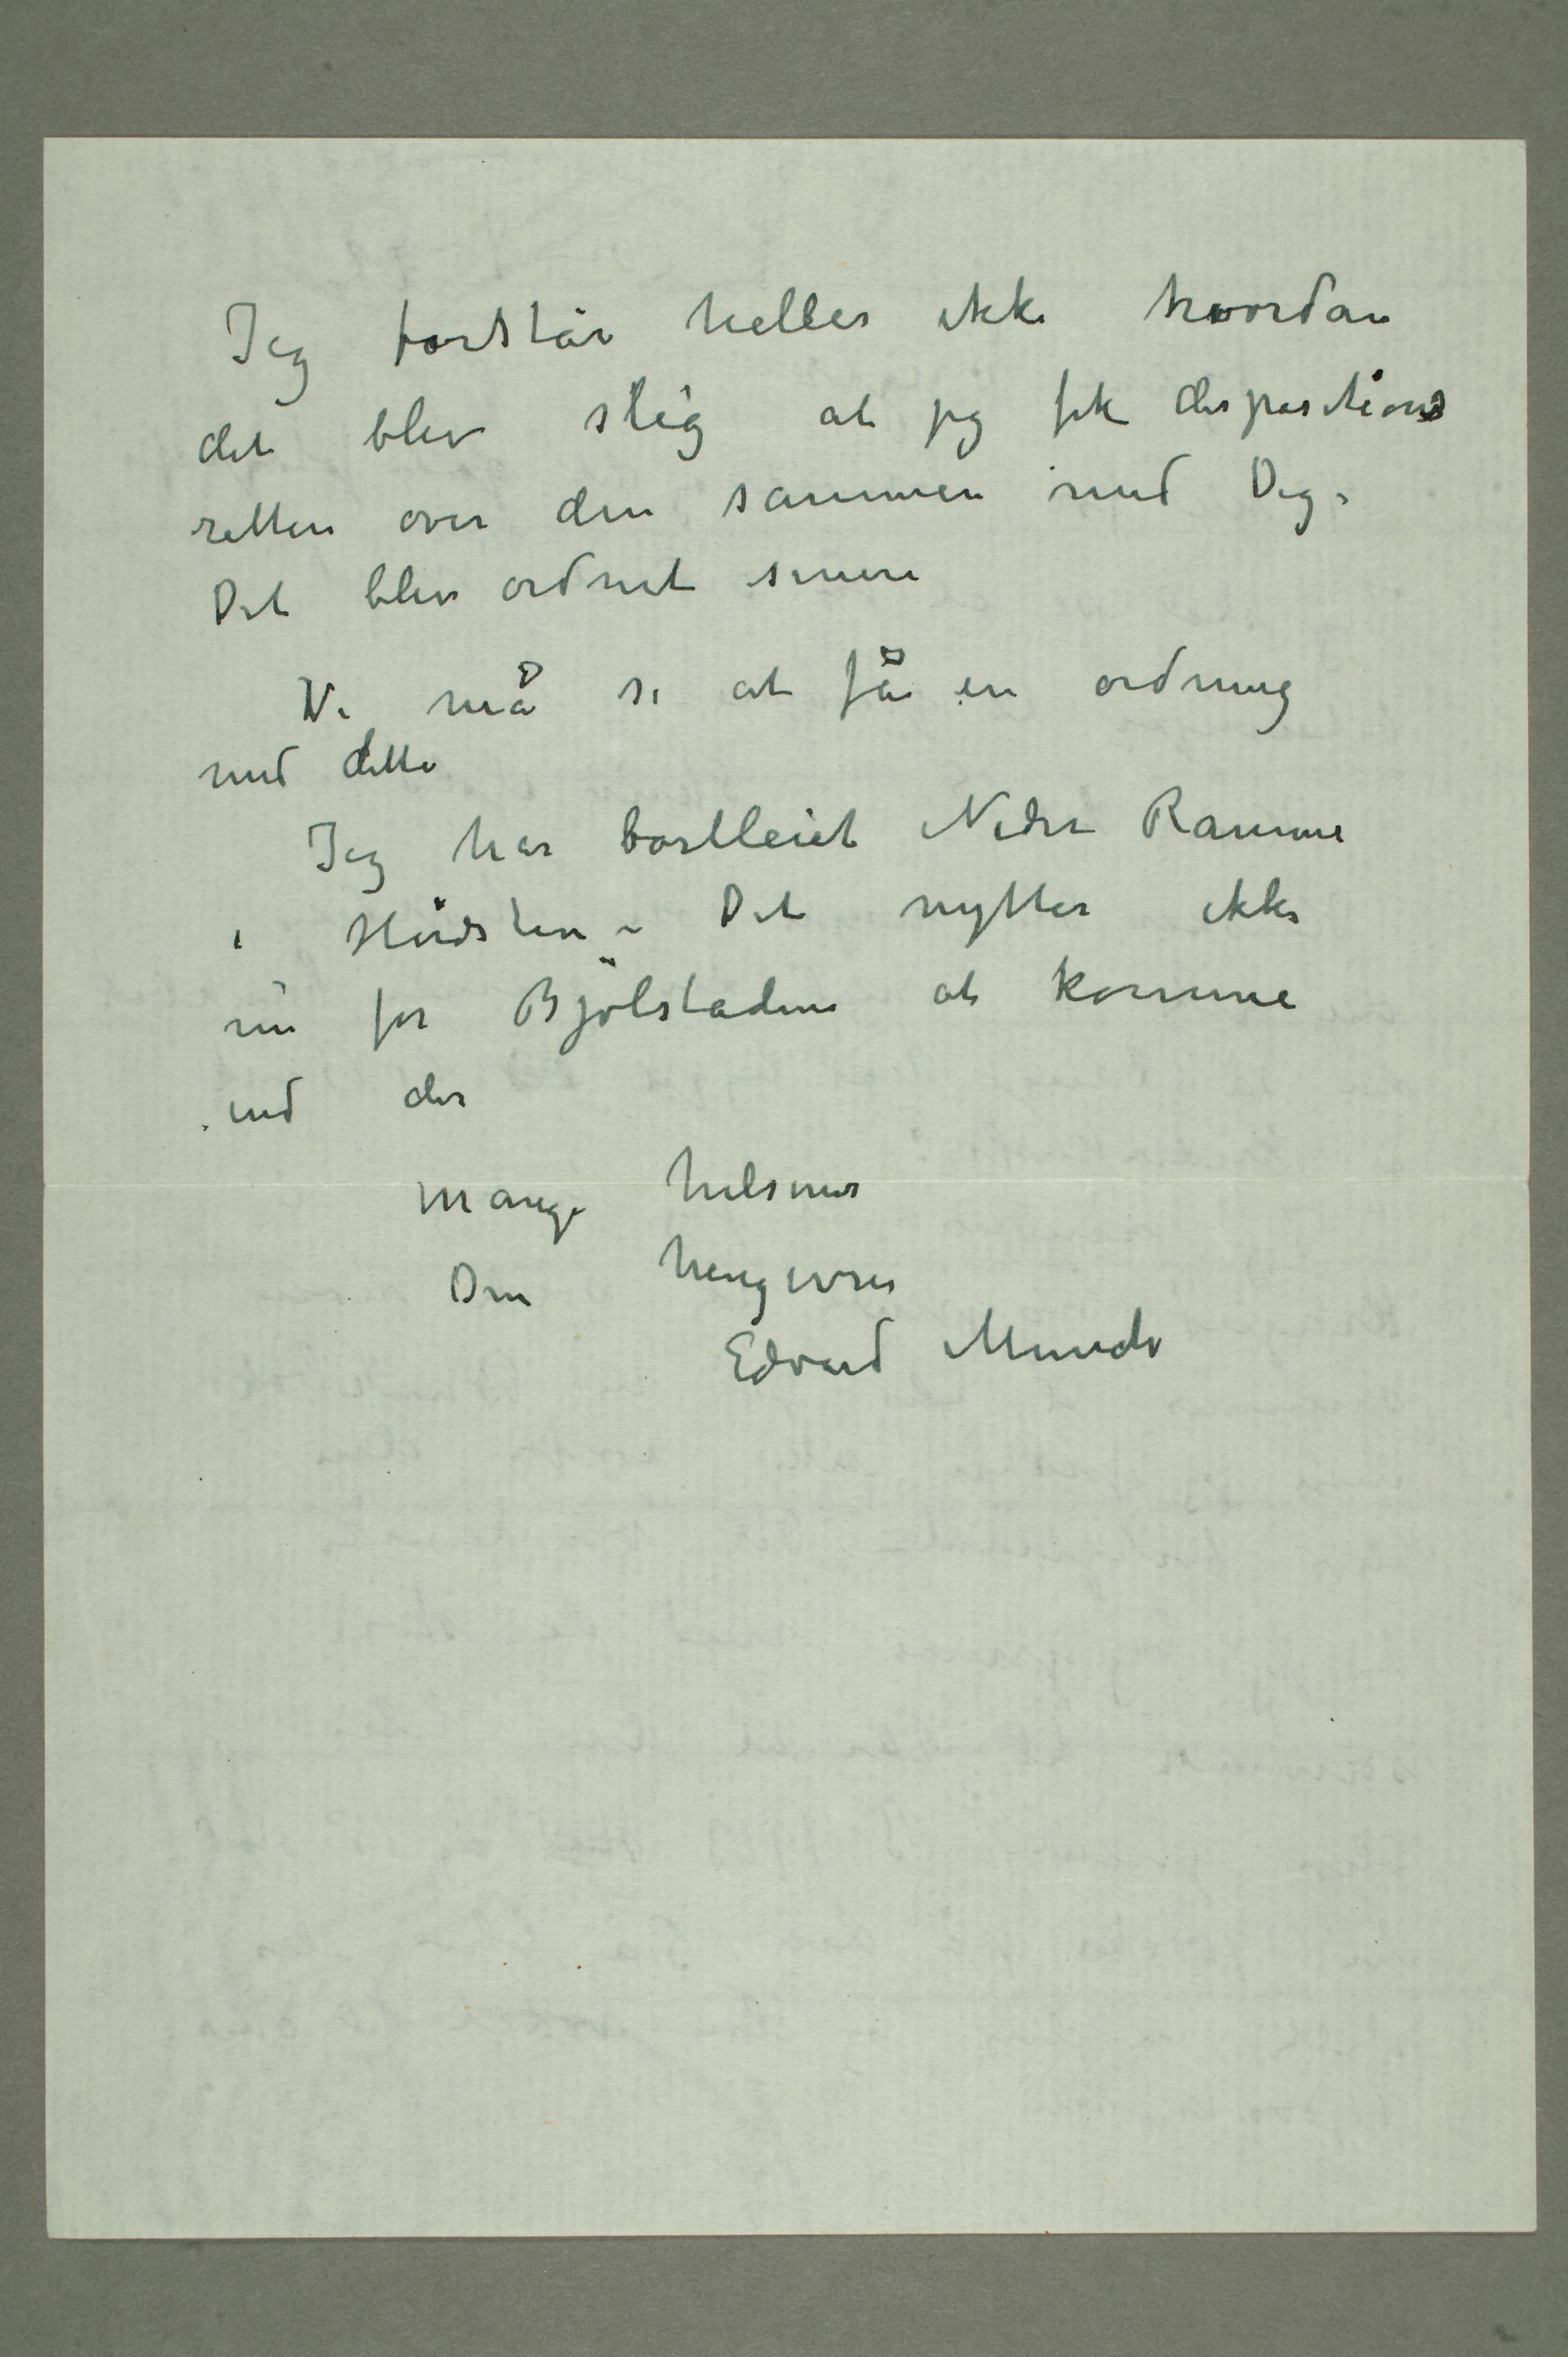 Jeg forstår heller ikke hvordan
det blev slig at jeg fik dispositions
retten over den sammen med Dig.
Det blev ordnet senere
Vi må se at få en ordning
med dette
Jeg har bortleiet Nedre Ramme
i Hvidsten – Det nytter ikke
nu for Bjölstadene at komme
ind der
Mange hilsener
Din hengivne
Edvard Munch